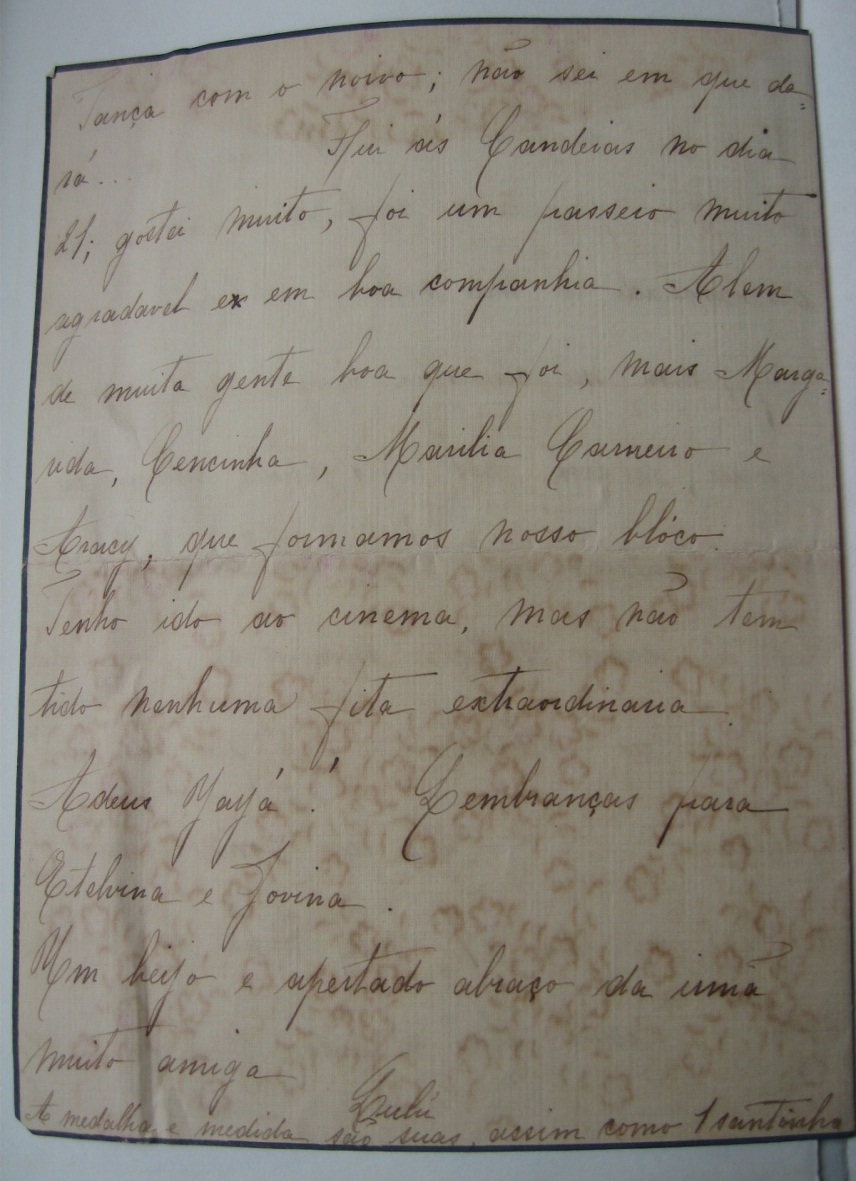 Tança com o noivo; não sei em que da=
rá... Fui ás Candeias no dia
21; gostei muito, foi um passeio muito
agradavel ex em boa companhia. Alem
de muita gente boa que foi, mais Marga=
rida, Cencinha, Marilia Carneiro e
Aracy, que formamos nosso blóco.
Tenho ido ao cinema, mas não tem
tido nenhuma fita extraordinaria.
Adeus Yayá! Lembranças para
Etelvina e Jovina.
Um beijo e apertado abraço da irmã
muito amiga
Lulú
A medalha e medida são suas, assim como 1 santinha